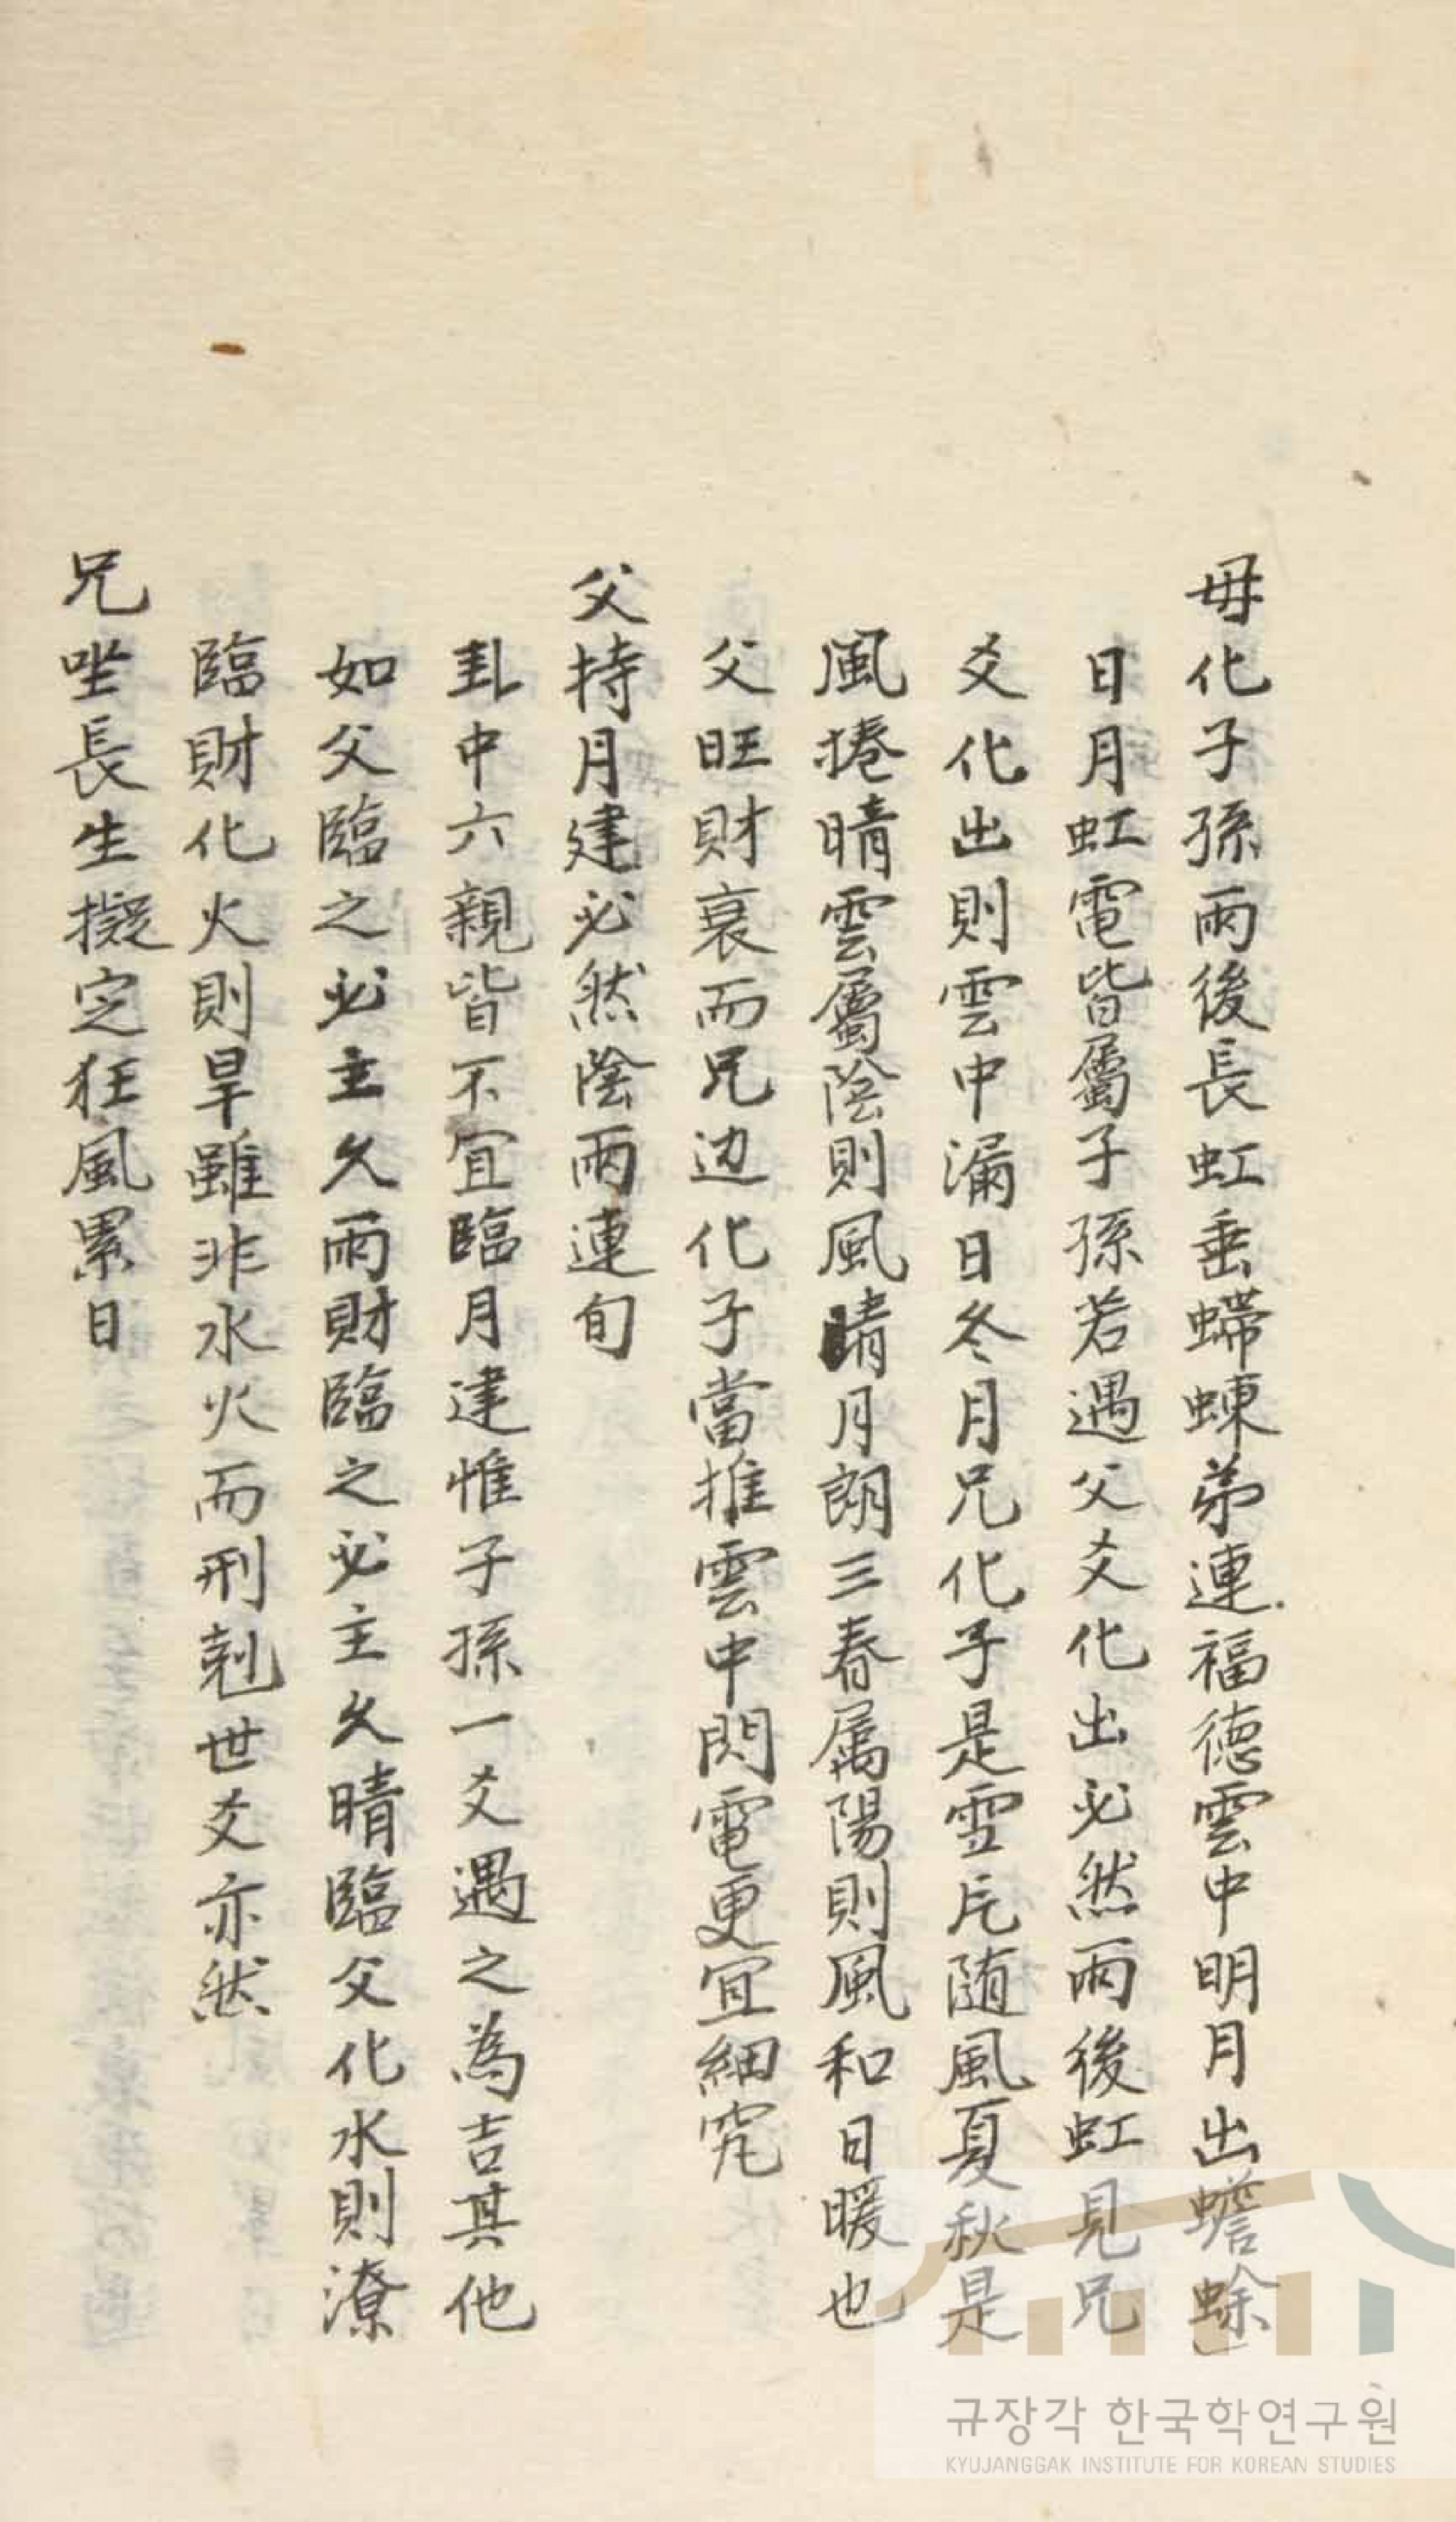 毋化子孫雨後長虹垂螮蝀弟連福德雲中明月出蟾蜍
日月虹電皆屬子孫若遇父爻化出必然雨後虹見兄
爻化出則雲中漏日冬月兄化子是雪片随風夏秋是
風捲晴雲屬陰則風晴月朗三春属陽則風和日暖也
父旺財衰而兄边化子當推雲中閃電更宜細究
父持月建必然陰雨連旬
卦中六親皆不宜臨月建惟子孫一爻遇之為吉其他
如父臨之必主久雨財臨之必主久晴臨父化水則潦
臨財化火則旱雖非水火而刑剋世爻亦然
兄坐長生擬定狂風累日
규장각 한국학연구원
KYUJANGGAK INSTITUTE FOR KOREAN STUDIES